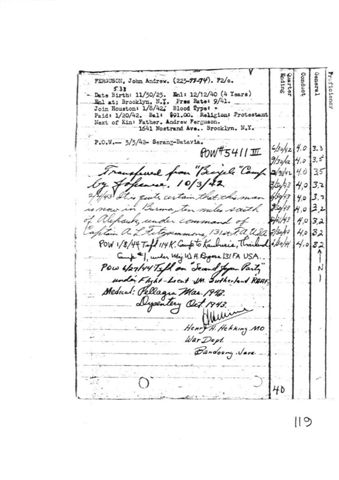 FERGUSON, John Andrew. (223-77-74). F2/c.
- Date Birth: 11/30/25. Enl: 12/12/40 (4 Years)
Enl at: Brooklyn, N.Y. Pres Rate: 9/41.
Join Houston: 1/8/42. Blood Type: -
Paid: 1/20/42. Bal: $01.00. Religion: Protestant
Next of Kin: Father. Andrew Ferguson.
1641 Nostrand Ave.. Brooklyn. N.Y.
P.O.W.— 3/3/43- Serang-Batavia.
POW #5411 III
Transferred from "Bicycle" Camp
by Japanese. 10/3/42.
It is quite certain that this man
is now in Burma, ten miles south
of under command of
Captain A. L. Fitzsimmons, 131st F.A. USA.
POW 1/8/44 Tsf 114K. Camp to Thailand
Camp #1, under Maj W.H. 131 FA USA..
POW 6/27/44 Tsf on "Second Japan Party"
under Flight-Lieut
Medical: Pellagra Mar 1943.
Dysentery Oct 1943.
Henry H. Hekking MO
War Dept.
Bandoeng. Java
Quarter Ending
Conduct
General
Proficiency
4.0 3.3
4.0 3.5
4.0 3.5
4.0 3.2
4.0 3.2
4.0 3.2
4.0 3.2
4.0 3.2
4.0 3.2
40
119